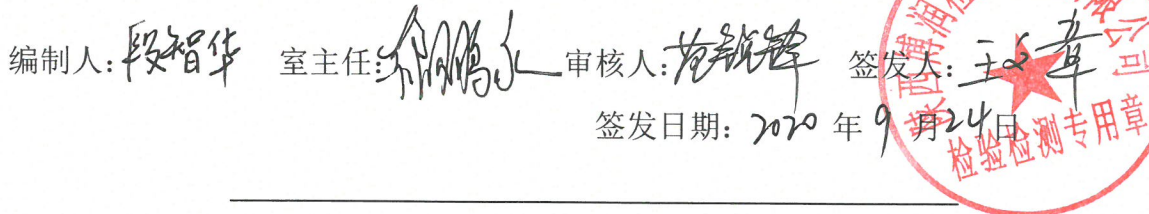 编制人:段智华 室主任: 审核人: 签发人:王文章
签发日期:2020 年 9 月24日
陕西浦润检 限公司
检验检测专用章